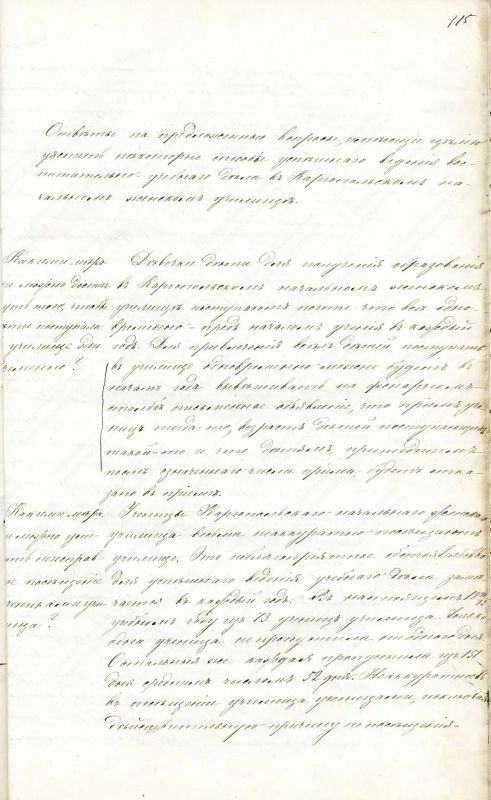 115
Ответы на предложенные вопросы, имеющие целью
уяснить некоторые способы успешнаго ведения вос-
питательно-учебнаго дела въ Каргопольскомъ на-
чальномъ женскомъ училище.
Какими мера-
ми можно дости-
гнуть того, чтобы
дети поступали
въ училище одно-
временно?
Девочки дети для получения образования
въ Каргопольскомъ начальномъ женскомъ
училище поступаютъ почти что все одно-
временно - предъ началомъ учения въ каждый
годъ. Для привлечения всехъ детей поступать
въ училище одновременно можно будетъ въ
начале года вывешивать на фонарномъ
столбе письменное объявление, что приемъ уче-
ницъ тогда-то, возрастъ детей поступающихъ
такой-то и что детямъ, приходимымъ
после означеннаго числа приема, будетъ отка-
зано въ приеме.
Какими мера-
ми можно
исправ
ное посещение
учениками учи-
лища?
Ученицы Каргопольскаго начальнаго женскаго
училища весьма неаккуратно посещаютъ
училище. Это неблагоприятное обстоятельство
для успешнаго ведения учебнаго дела заме-
чается въ каждый годъ. Въ настоящемъ
учебномъ году изъ 73 ученицъ училища только
одна ученица не пропустила ни однаго дня.
Остальныя же каждая пропустила изъ 151
дня среднимъ числомъ 52 дня. Неаккуратность
въ посещении училища ученицами, исключая
действительную причину не посещения-